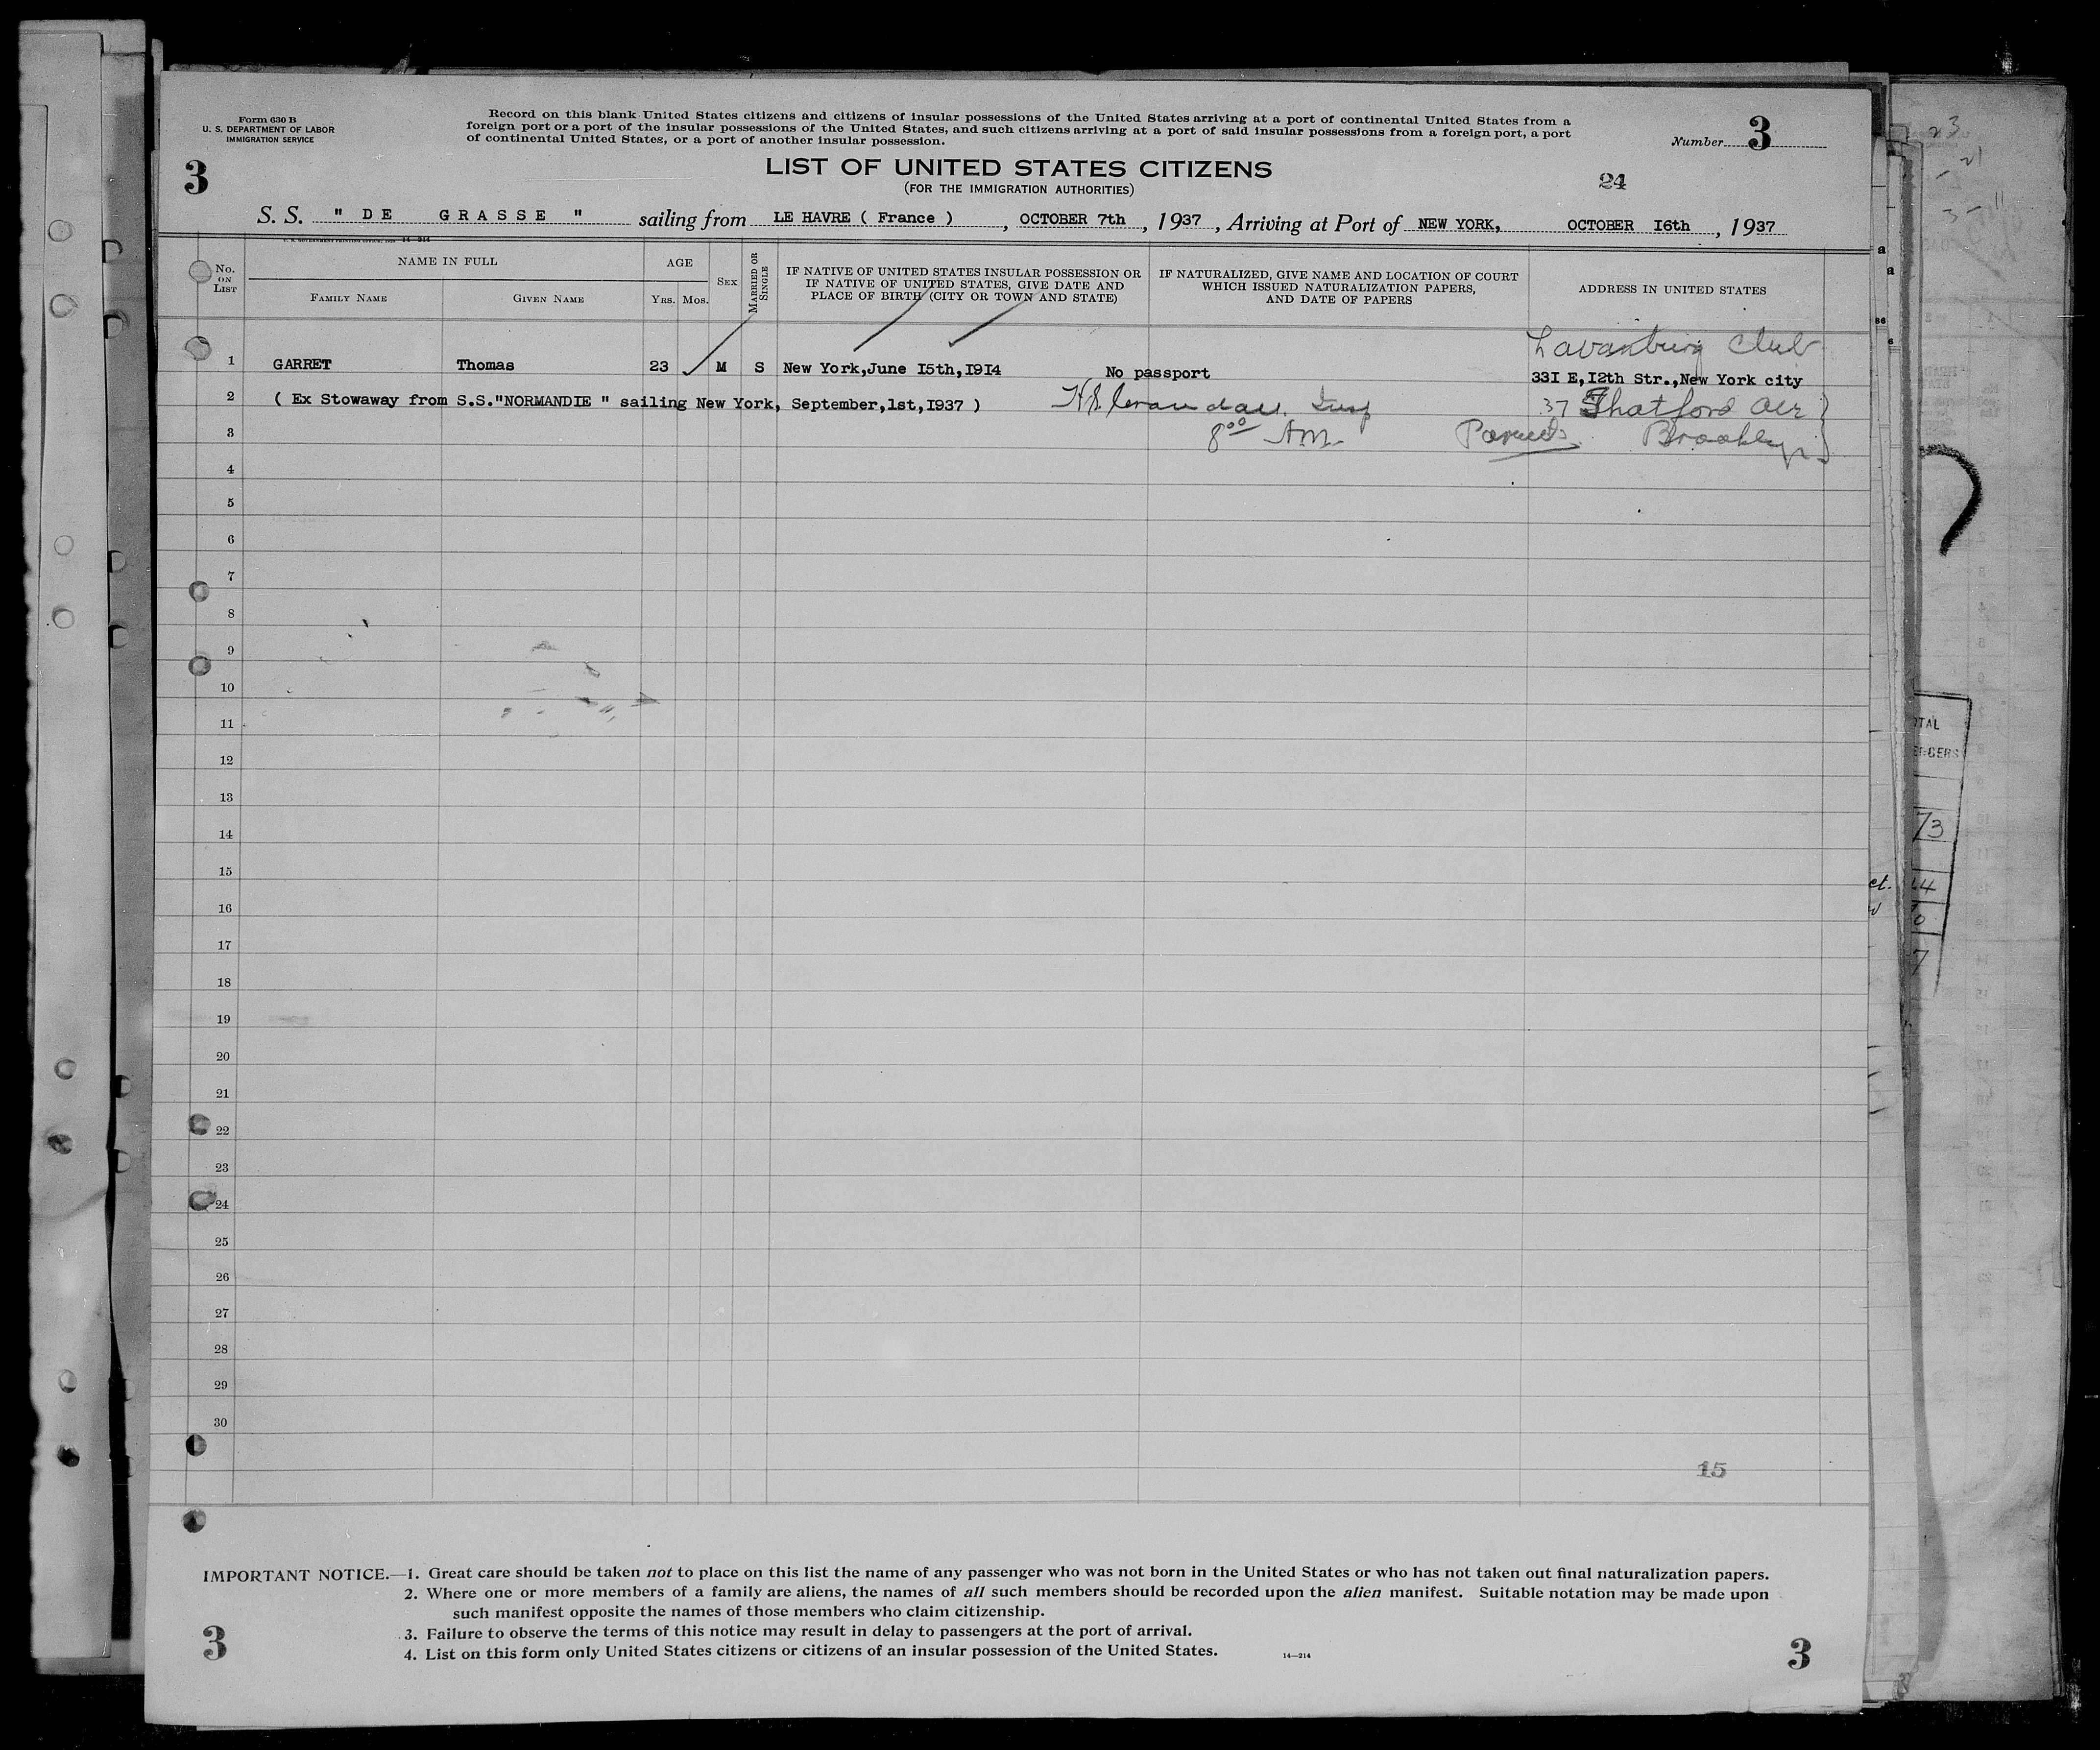 Form 630 B
U. S. DEPARTMENT OF LABOR
IMMIGRATION SERVICE
Record on this blank United States citizens and citizens of insular possessions of the United States arriving at a port of continental United States from a
foreign port or a port of the insular possessions of the United States, and such citizens arriving at a port of said insular possessions from a foreign port, a port
of continental United States, or a port of another insular possession.
Number 3
3
LIST OF UNITED STATES CITIZENS
(FOR THE IMMIGRATION AUTHORITIES)
24
S. S. " DE GRASSE " sailing from LE HAVRE ( France ) , OCTOBER 7th , 1937 , Arriving at Port of NEW YORK, OCTOBER I6th , 1937
No. ON LIST
NAME IN FULL
FAMILY NAME
GIVEN NAME
AGE
YRS. MOS.
SEX
MARRIED OR SINGLE
IF NATIVE OF UNITED STATES INSULAR POSSESSION OR
IF NATIVE OF UNITED STATES, GIVE DATE AND
PLACE OF BIRTH (CITY OR TOWN AND STATE)
IF NATURALIZED, GIVE NAME AND LOCATION OF COURT
WHICH ISSUED NATURALIZATION PAPERS,
AND DATE OF PAPERS
ADDRESS IN UNITED STATES
Lavanburg Club
1 GARRET Thomas 23 M S New York,June I5th,I9I4 No passport 33I E,I2th Str.,New York city
2 ( Ex Stowaway from S.S."NORMANDIE " sailing New York, September,1st,I937 ) Insp 37
3 8 00 AM. Brooklyn
4
5
6
7
8
9
10
11
12
13
14
15
16
17
18
19
20
21
22
23
24
25
26
27
28
29
30
15
IMPORTANT NOTICE.—1. Great care should be taken not to place on this list the name of any passenger who was not born in the United States or who has not taken out final naturalization papers.
2. Where one or more members of a family are aliens, the names of all such members should be recorded upon the alien manifest. Suitable notation may be made upon
such manifest opposite the names of those members who claim citizenship.
3. Failure to observe the terms of this notice may result in delay to passengers at the port of arrival.
4. List on this form only United States citizens or citizens of an insular possession of the United States.
14—214
3
3